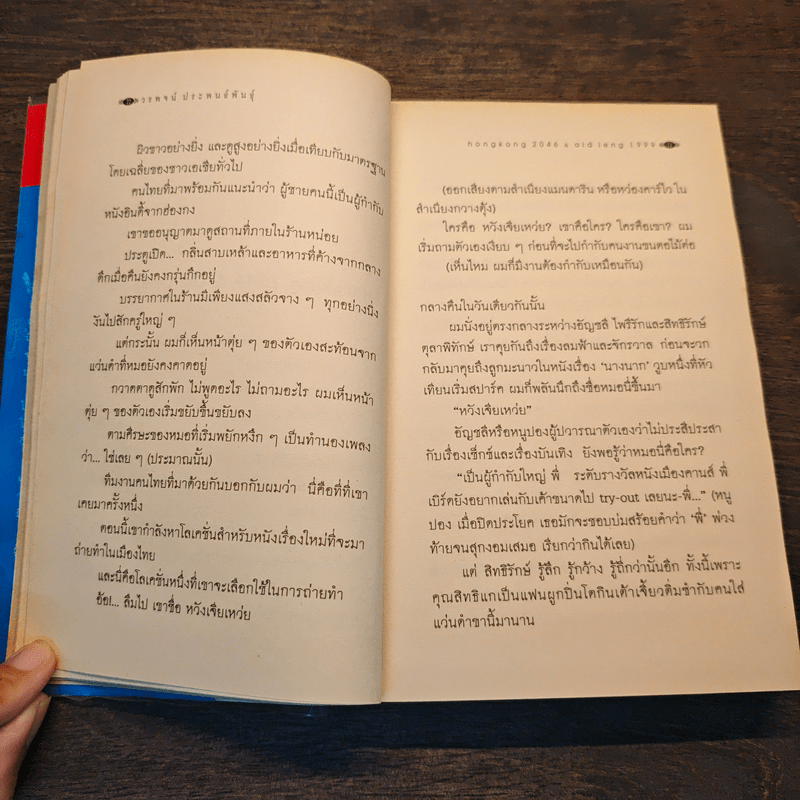 วรพจน์ ประพนธ์พันธุ์
ผิวขาวอย่างยิ่ง และดูสูงอย่างยิ่งเมื่อเทียบกับมาตรฐาน
โดยเฉลี่ยของชาวเอเชียทั่วไป
คนไทยที่มาพร้อมกันแนะนำว่า ผู้ชายคนนี้เป็นผู้กำกับ
หนังอินดี้จากฮ่องกง
เขาขออนุญาตมาดูสถานที่ภายในร้านหน่อย
ประตูเปิด... กลิ่นสาบเหล้าและอาหารที่ค้างจากกลาง
ดึกเมื่อคืนยังคงกรุ่นกึกอยู่
บรรยากาศในร้านมีเพียงแสงสลัวจาง ๆ ทุกอย่างนิ่ง
งันไปสักครู่ใหญ่ ๆ
แต่กระนั้น ผมก็เห็นหน้าตุ่ย ๆ ของตัวเองสะท้อนจาก
แว่นดำที่หมอยังคงคาดอยู่
กวาดตาดูสักพัก ไม่พูดอะไร ไม่ถามอะไร ผมเห็นหน้า
ตุ่ย ๆ ของตัวเองเริ่มขยับขึ้นขยับลง
ตามศีรษะของหมอที่เริ่มพยักหงึก ๆ เป็นทำนองเพลง
ว่า... ใช่เลย ๆ (ประมาณนั้น)
ทีมงานคนไทยที่มาด้วยกันบอกกับผมว่า นี่คือที่ที่เขา
เคยมาครั้งหนึ่ง
ตอนนี้เขากำลังหาโลเคชั่นสำหรับหนังเรื่องใหม่ที่จะมา
ถ่ายทำในเมืองไทย
และนี่คือโลเคชั่นหนึ่งที่เขาจะเลือกใช้ในการถ่ายทำ
อ้อ!... ลืมไป เขาชื่อ หวังเจียเหว่ย
hongkong 2046 & old leng 1999
(ออกเสียงตามสำเนียงแมนดาริน หรือหว่องคาร์ไว ใน
สำเนียงกวางตุ้ง)
ใครคือ หวังเจียเหว่ย? เขาคือใคร? ใครคือเขา? ผม
เริ่มถามตัวเองเงียบ ๆ ก่อนที่จะไปกำกับคนงานขนตอไม้ต่อ
(เห็นไหม ผมก็มีงานต้องกำกับเหมือนกัน)
กลางคืนในวันเดียวกันนั้น
ผมนั่งอยู่ตรงกลางระหว่างอัญชลี ไพรีรักและสิทธิรักษ์
ตุลาพิทักษ์ เราคุยกันถึงเรื่องลมฟ้าและจักรวาล ก่อนจะวก
กลับมาคุยถึงลูกมะนาวในหนังเรื่อง ‘นางนาก’ วูบหนึ่งที่หัว
เทียนเริ่มสปาร์ค ผมก็พลันนึกถึงชื่อหมอนี่ขึ้นมา
“หวังเจียเหว่ย”
อัญชลีหรือหนูปองผู้ปวารณาตัวเองว่าไม่ประสีประสา
กับเรื่องเซ็กซ์และเรื่องบันเทิง ยังพอรู้ว่าหมอนี่คือใคร?
“เป็นผู้กำกับใหญ่ พี่ ระดับรางวัลหนังเมืองคานส์ พี่
เบิร์ดยังอยากเล่นกับเค้าขนาดไป try-out เลยนะ-พี่...” (หนู
ปอง เมื่อปิดประโยค เธอมักจะชอบบ่มสร้อยคำว่า ‘พี่’ พ่วง
ท้ายจนสุกงอมเสมอ เรียกว่ากินได้เลย)
แต่ สิทธิรักษ์ รู้ลึก รู้กว้าง รู้ถี่กว่านั้นอีก ทั้งนี้เพราะ
คุณสิทธิแกเป็นแฟนผูกปิ่นโตกินเต้าเจี้ยวดิ่มซำกับคนใส่
แว่นดำขานี้มานาน